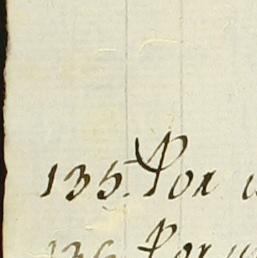 135. Por
136. Por